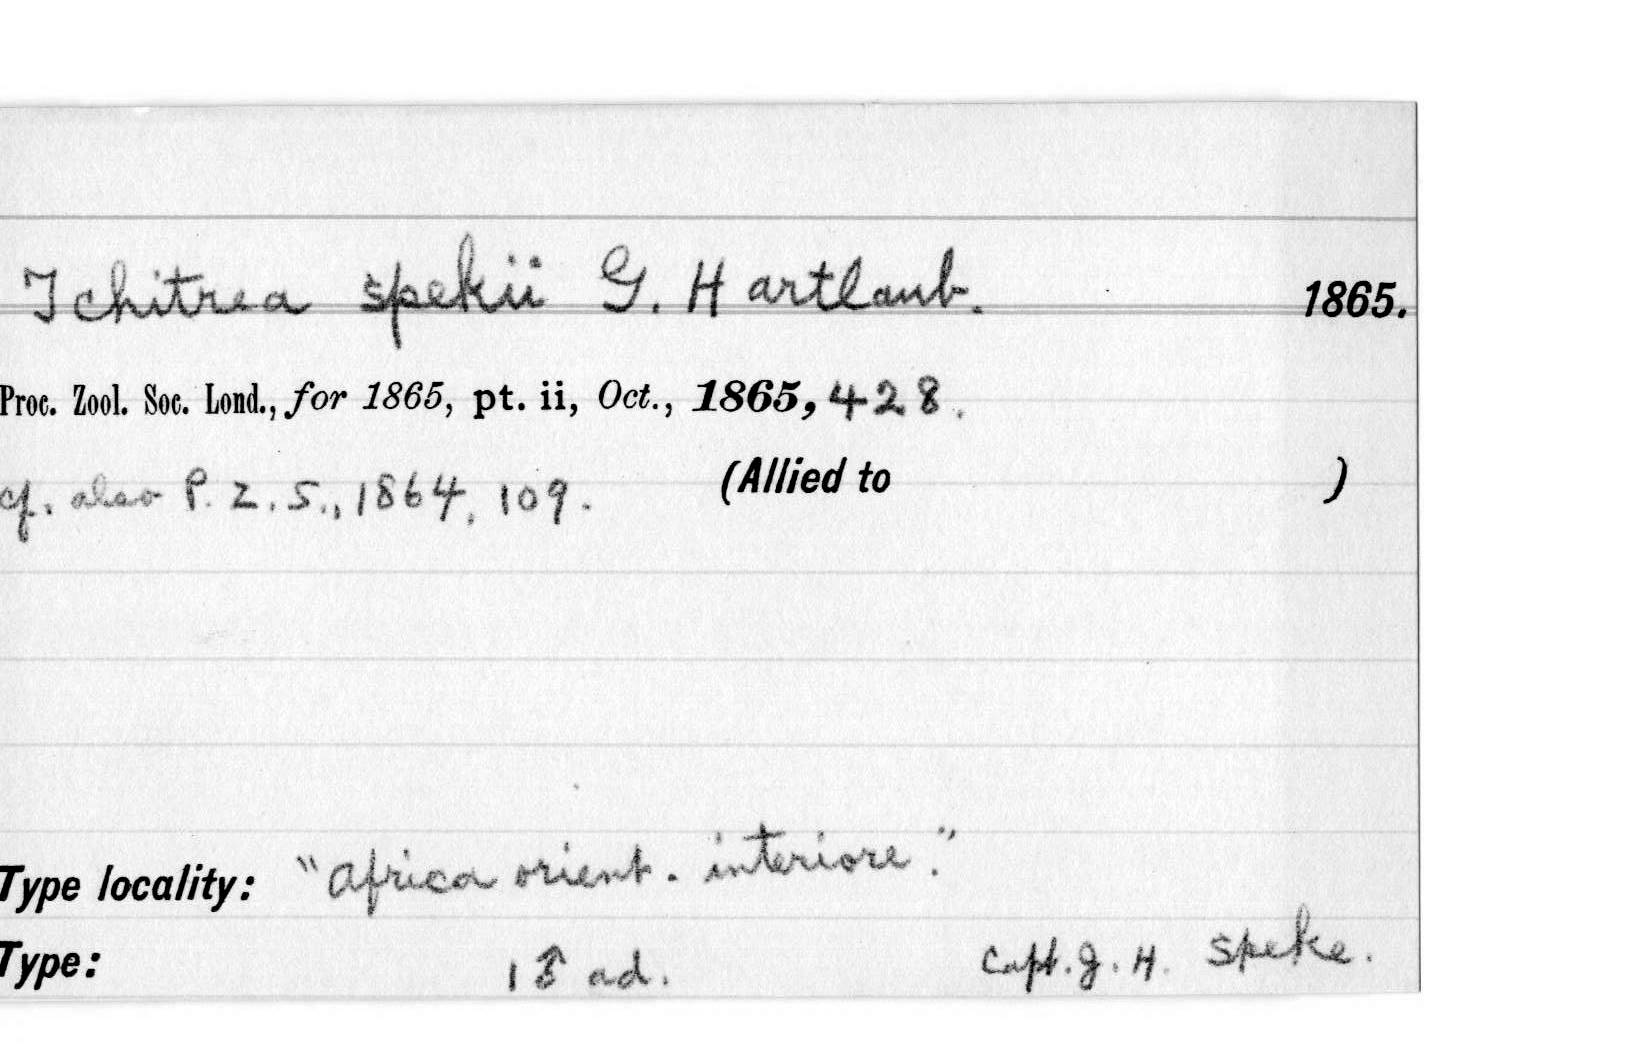 Tchitrea spekii G. Hartlaub. 1865.
Proc. Zool. Soc. Lond., for 1865, pt. ii, Oct., 1865, 428.
cf. also P. Z. S., 1864, 109. (Allied to )
Type locality: "Africa orient. interiore."
Type: 1 ♂ ad. Capt. J. H. Speke.